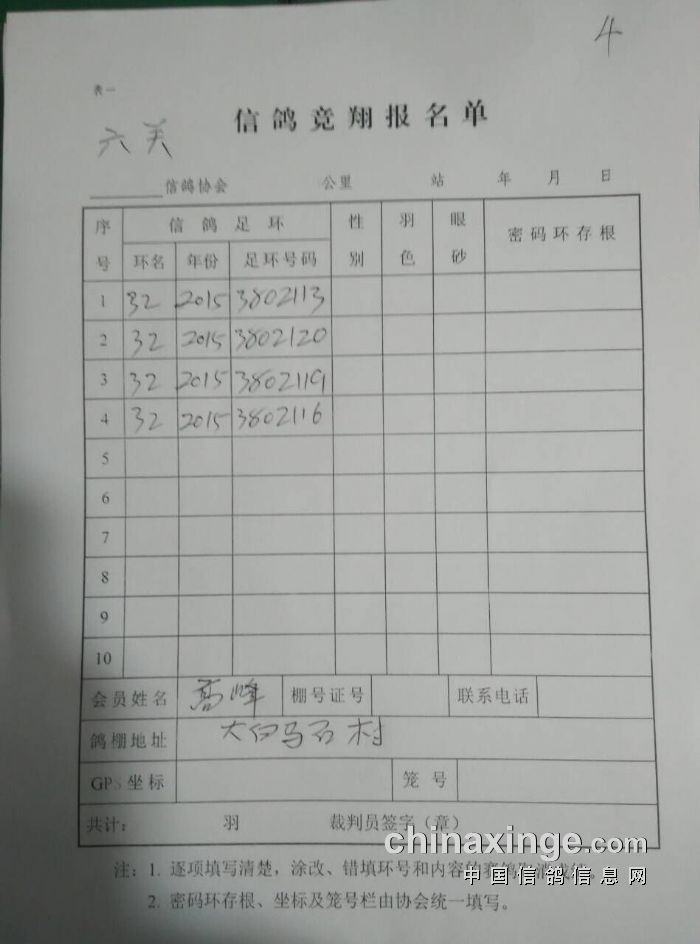 4
表一
信鸽竞翔报名单
六关
信鸽协会 公里 站 年 月 日
序号 信鸽足环 性别 羽色 眼砂 密码环存根
环名 年份 足环号码
1 32 2015 3802113
2 32 2015 3802120
3 32 2015 3802119
4 32 2015 3802116
5
6
7
8
9
10
会员姓名 高峰 棚号证号 联系电话
鸽棚地址 大白马石村
GPS坐标 笼号
共计： 羽 裁判员签字（章）
注：1. 逐项填写清楚，涂改、错填环号和内容的赛鸽取消成绩。
2. 密码环存根、坐标及笼号栏由协会统一填写。
chinaxinge.com
中国信鸽信息网